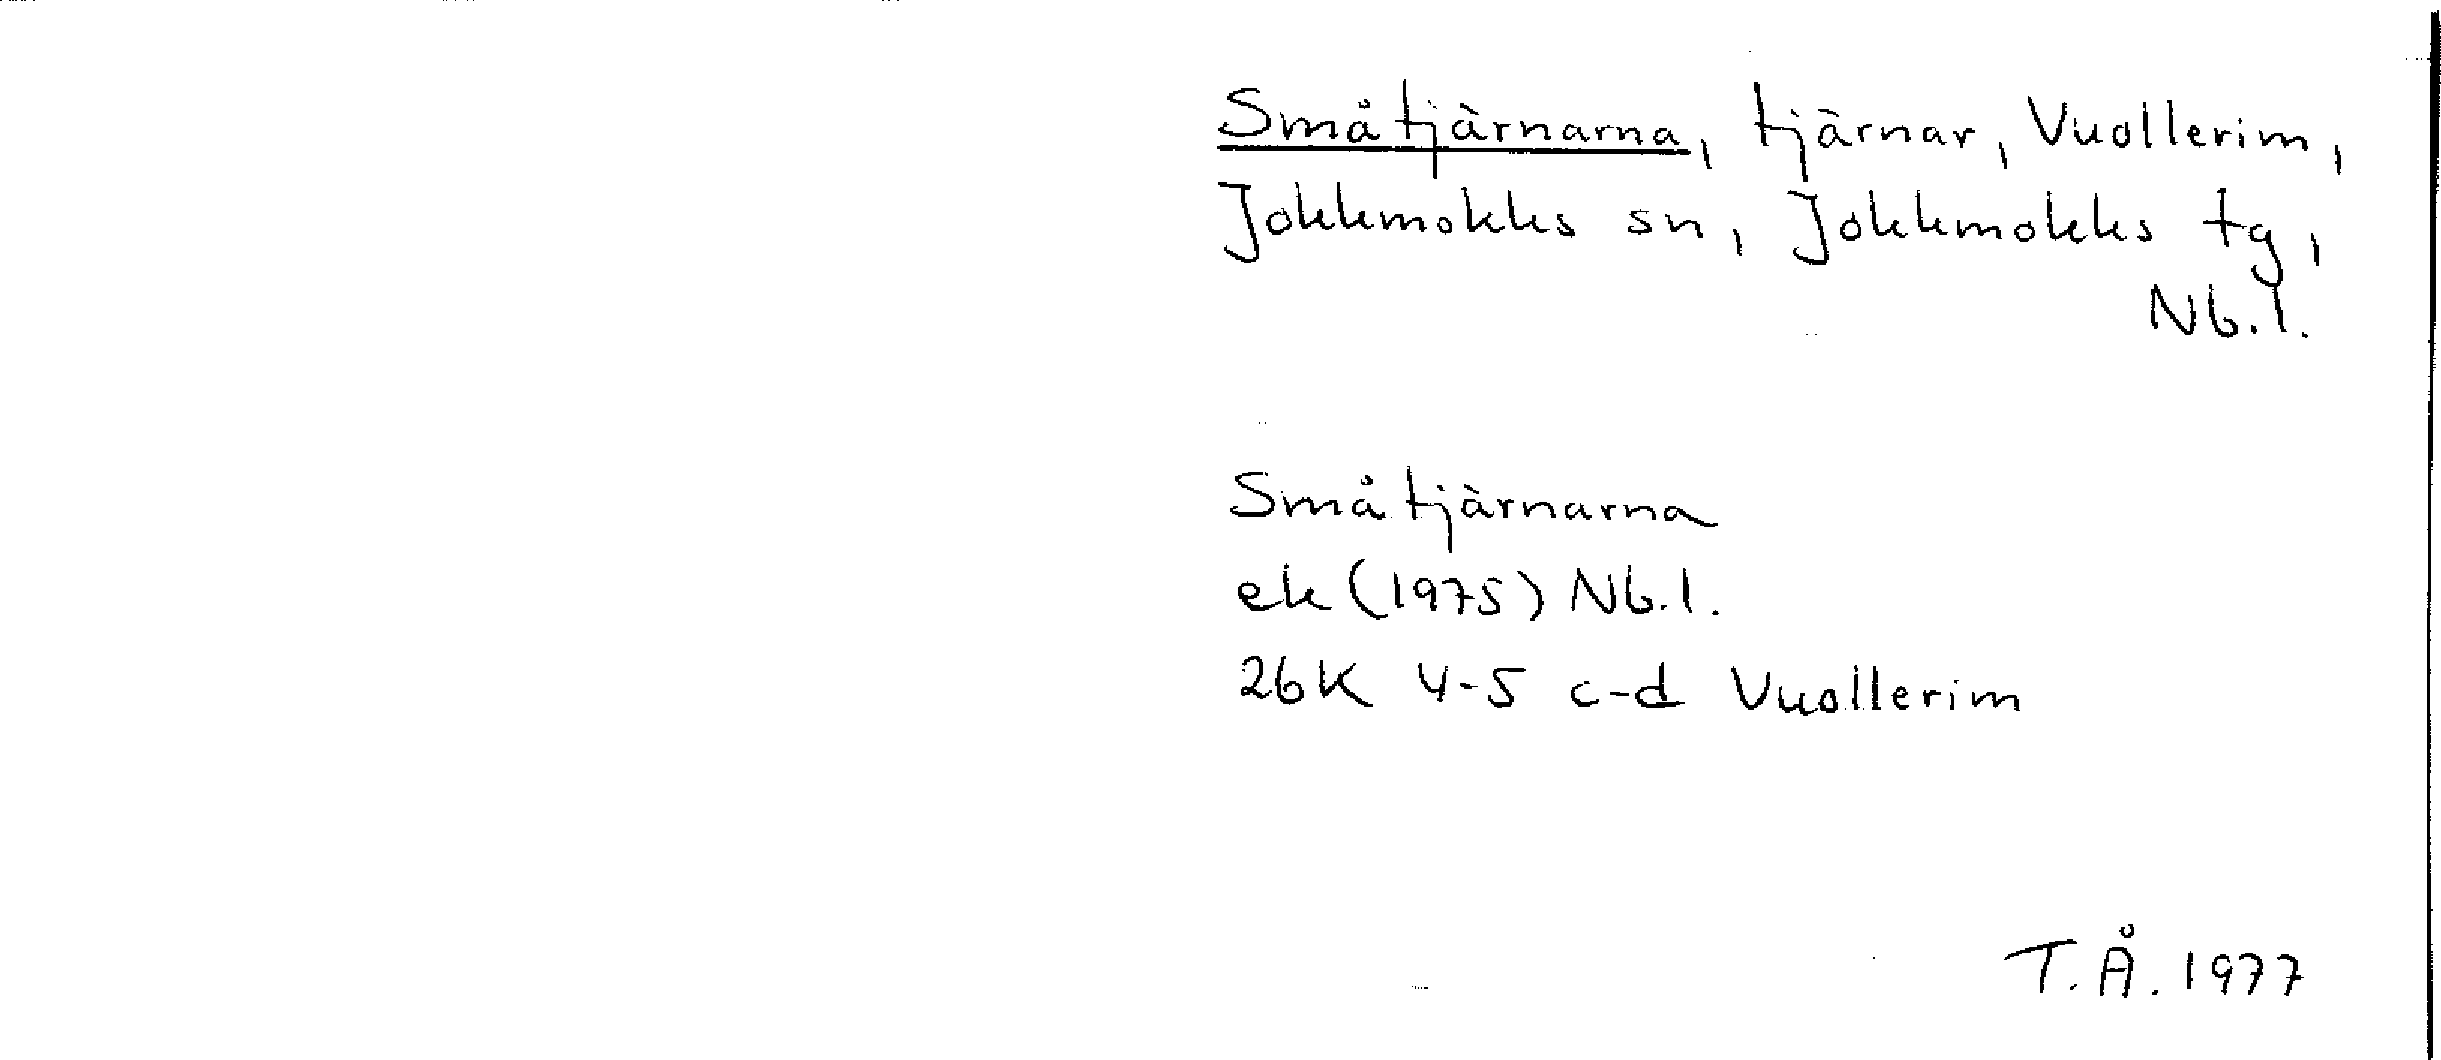 Småtjärnarna, tjärnar, Vuollerim,
Jokkmokks sn, Jokkmokks tg,
Nb.l.
Småtjärnarna
ek (1975) Nb.l.
26K 4-5 c-d Vuollerim
T.Å. 1977